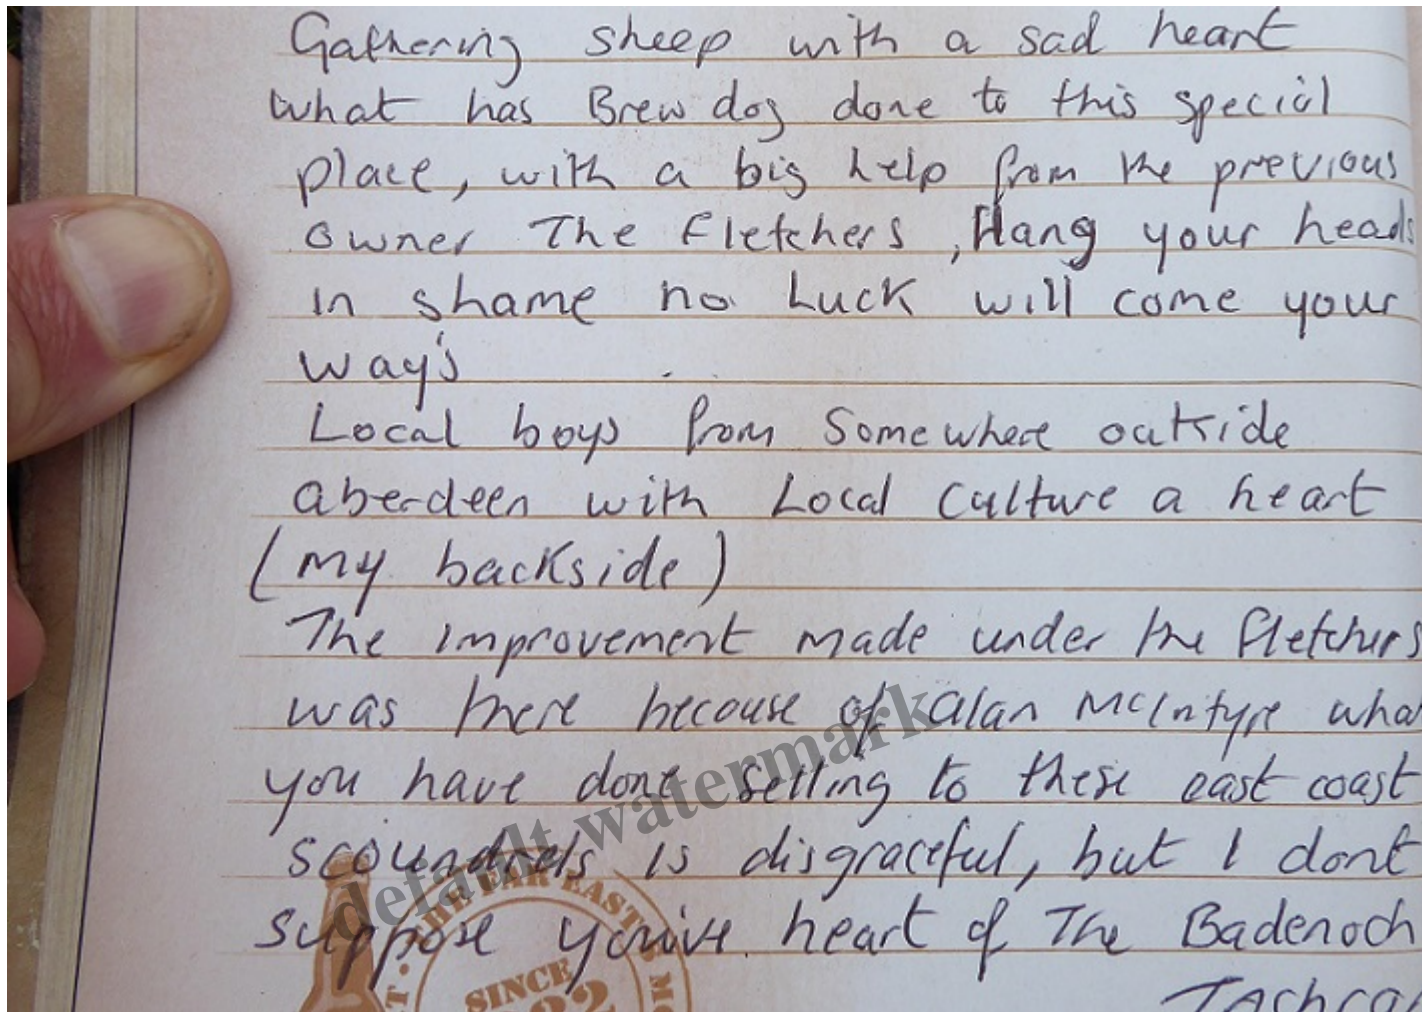 Gathering sheep with a sad heart
what has Brewdog done to this special
place, with a big help from the previous
owner The Fletchers, Hang your heads
in shame no Luck will come your
way's
Local boys from Somewhere outside
aberdeen with Local Culture a heart
(my backside)
The improvement made under the Fletchers
was there because of alan McIntyre what
you have done selling to these east coast
scoundrels is disgraceful, but I dont
suppose you've heart of The Badenoch
default watermark
THE FAR EAST'S MO
SINCE